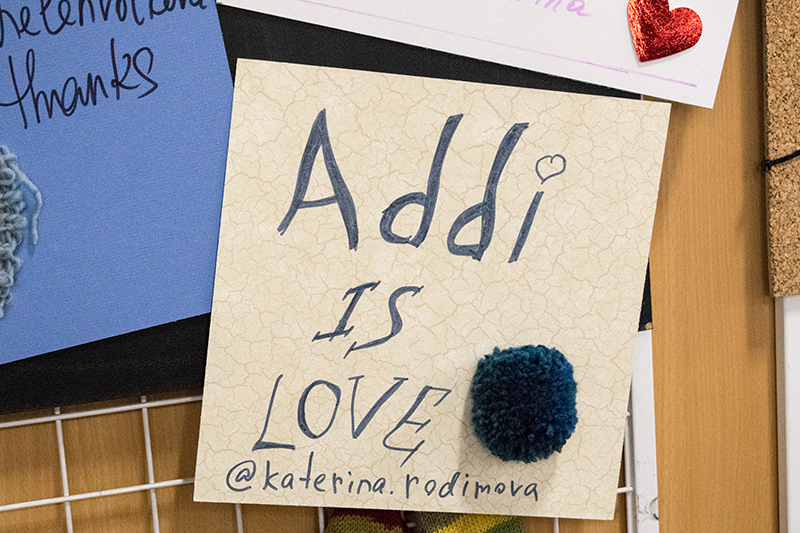 thanks
Addi
IS
LOVE
@katerina.rodimova